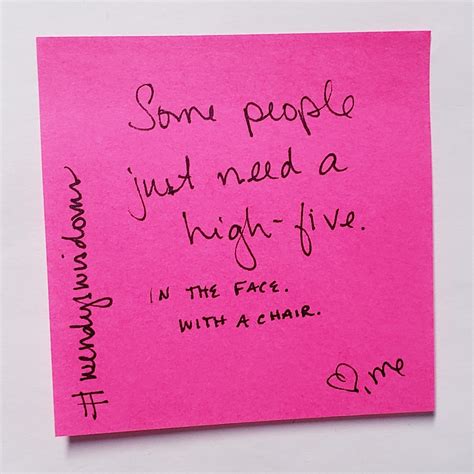 Some people
just need a
high-five.
IN THE FACE.
WITH A CHAIR.
♡, me
#wendyswisdoms